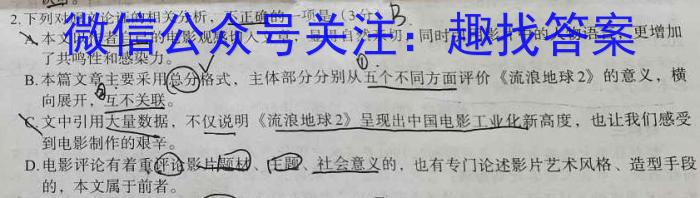 2.下列对本文论评的相关分析，不正确的一项是（3分） B
微信公众号关注：趣找答案
A.本文 电影观感切入文章， 自然 切，同时 更增加
了共鸣性和感染力。
B.本篇文章主要采用总分格式，主体部分分别从五个不同方面评价《流浪地球2》的意义，横
向展开，互不关联。
C.文中引用大量数据，不仅说明《流浪地球2》呈现出中国电影工业化新高度，也让我们感受
到电影制作的艰辛。
D.电影评论有着重评论影片题材、主题、社会意义的，也有专门论述影片艺术风格、造型手段
的，本文属于前者。